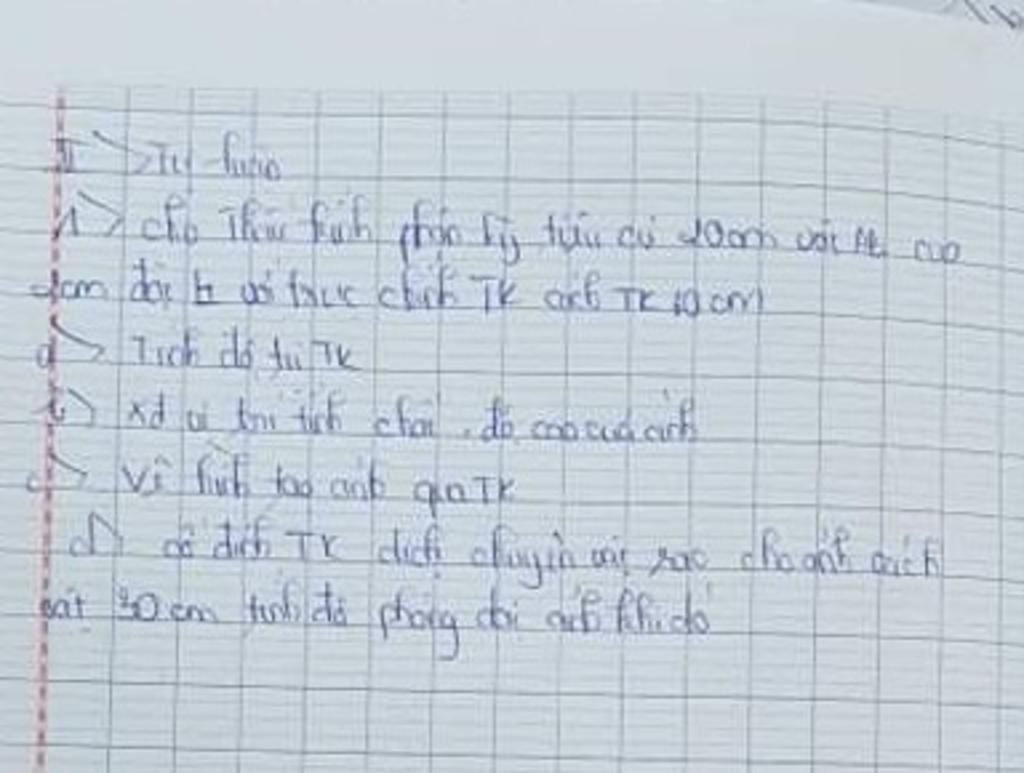 II> Tự luận
1> cho Thấu kính phân kỳ tiêu cự 20cm vật AB cao
2cm đặt ⊥ với trục chính TK cách TK 10cm
a> Tính độ tụ TK
b> xđ vị trí tính chất, độ cao của ảnh
c> Vẽ hình tạo ảnh qua TK
d> cố định TK dịch chuyển vật sao cho ảnh cách
vật 30cm tính độ phóng đại ảnh khi đó